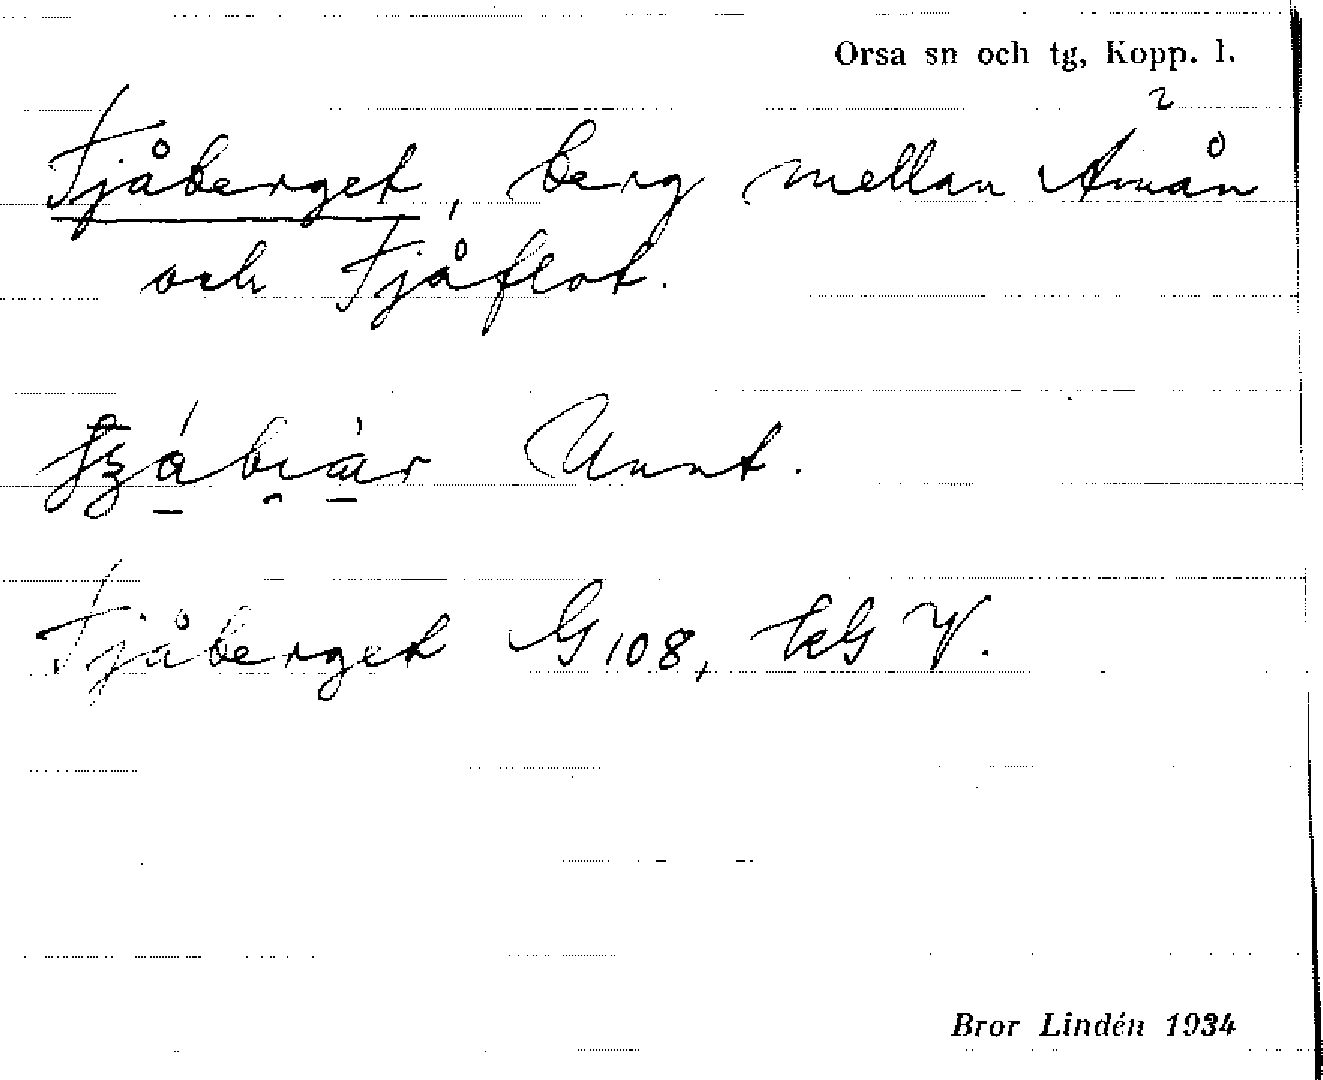 Orsa sn och tg, Kopp. l.
2
Fjåberget, berg mellan Amån
och Fjåflot.
Unnt.
Fjåberget G 108, KG V.
Bror Lindén 1934